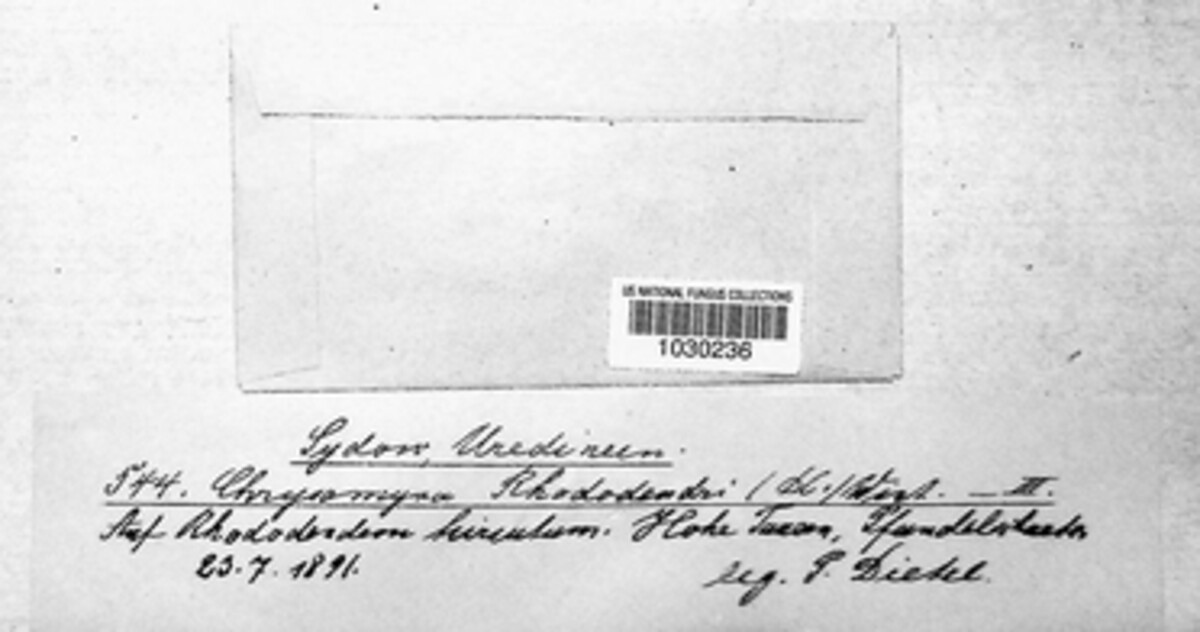 US NATIONAL FUNGUS COLLECTIONS
1030236
Sydow, Uredineen.
544. Chrysomyxa Rhododendri / (DC.) — III.
Auf Rhododendron hirsutum. Hohe Tauern,
23.7.1891.
leg. P. Dietel.